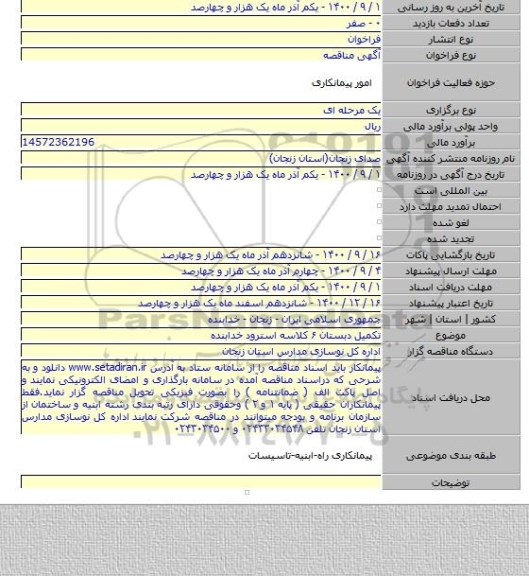 تاریخ آخرین به روز رسانی ۱ / ۹ / ۱۴۰۰ - یکم آذر ماه یک هزار و چهارصد
تعداد دفعات بازدید ۰ - صفر
نوع انتشار فراخوان
نوع فراخوان آگهی مناقصه
حوزه فعالیت فراخوان امور پیمانکاری
نوع برگزاری یک مرحله ای
واحد پولی برآورد مالی ریال
برآورد مالی 14572362196
نام روزنامه منتشر کننده آگهی صدای زنجان(استان زنجان)
تاریخ درج آگهی در روزنامه ۱ / ۹ / ۱۴۰۰ - یکم آذر ماه یک هزار و چهارصد
بین المللی است
احتمال تمدید مهلت دارد
لغو شده
تجدید شده
تاریخ بازگشایی پاکات ۱۶ / ۹ / ۱۴۰۰ - شانزدهم آذر ماه یک هزار و چهارصد
مهلت ارسال پیشنهاد ۴ / ۹ / ۱۴۰۰ - چهارم آذر ماه یک هزار و چهارصد
مهلت دریافت اسناد ۱ / ۹ / ۱۴۰۰ - یکم آذر ماه یک هزار و چهارصد
تاریخ اعتبار پیشنهاد ۱۶ / ۱۲ / ۱۴۰۰ - شانزدهم اسفند ماه یک هزار و چهارصد
کشور | استان | شهر جمهوری اسلامی ایران - زنجان - خدابنده
موضوع تکمیل دبستان ۶ کلاسه استرود خدابنده
دستگاه مناقصه گزار اداره کل نوسازی مدارس استان زنجان
محل دریافت اسناد پیمانکار باید اسناد مناقصه را از سامانه ستاد به آدرس www.setadiran.ir دانلود و به
شرحی که دراسناد مناقصه آمده در سامانه بارگذاری و امضای الکترونیکی نمایند و
اصل پاکت الف ( ضمانتنامه ) را بصورت فیزیکی تحویل مناقصه گزار نماید.فقط
پیمانکاران حقیقی ( پایه ۱ و ۲ ) وحقوقی دارای رتبه بندی رشته ابنیه و ساختمان از
سازمان برنامه و بودجه میتوانند در مناقصه شرکت نمایند اداره کل نوسازی مدارس
استان زنجان تلفن ۰۲۴۳۳۰۳۴۵۴۸ و ۰۲۴۳۳۰۳۴۵۰۰
طبقه بندی موضوعی پیمانکاری راه-ابنیه-تاسیسات
توضیحات